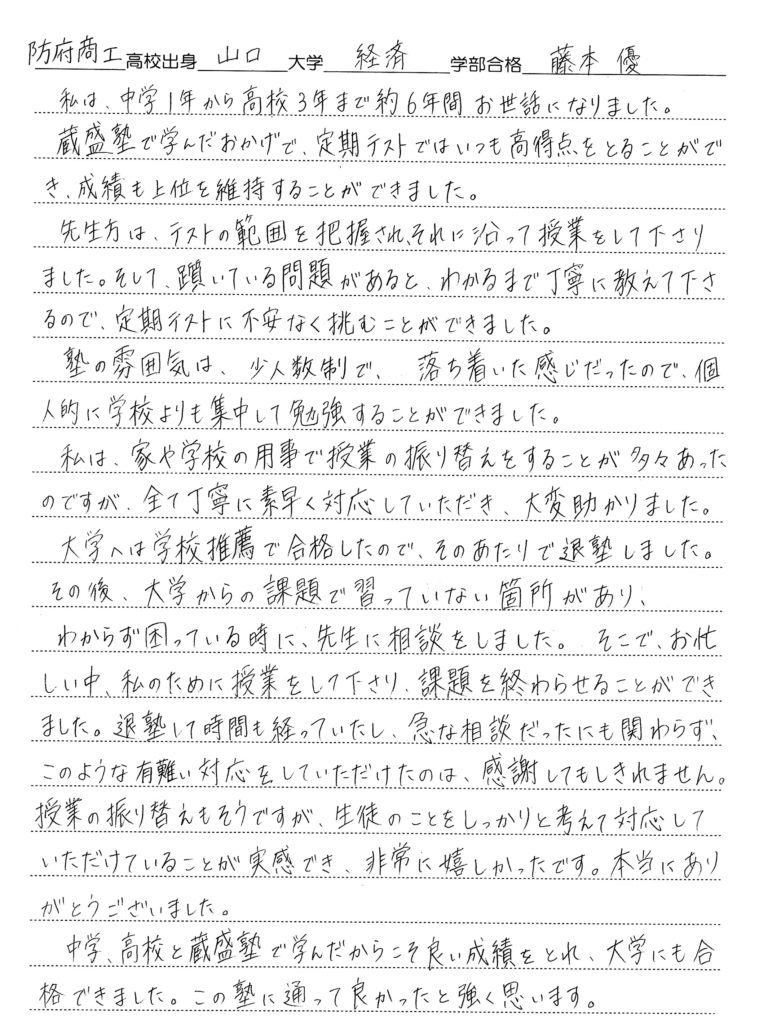 防府商工高校出身 山口 大学 経済 学部合格 藤本 優
私は、中学1年から高校3年まで約6年間お世話になりました。
蔵盛塾で学んだおかげで、定期テストではいつも高得点をとることがで
き、成績も上位を維持することができました。
先生方は、テストの範囲を把握され、それに沿って授業をして下さり
ました。そして、躓いている問題があると、わかるまで丁寧に教えて下さ
るので、定期テストに不安なく挑むことができました。
塾の雰囲気は、少人数制で、落ち着いた感じだったので、個
人的に学校よりも集中して勉強することができました。
私は、家や学校の用事で授業の振り替えをすることが多々あった
のですが、全て丁寧に素早く対応していただき、大変助かりました。
大学へは学校推薦で合格したので、そのあたりで退塾しました。
その後、大学からの課題で習っていない箇所があり、
わからず困っている時に、先生に相談をしました。そこで、お忙
しい中、私のために授業をして下さり、課題を終わらせることができ
ました。退塾して時間も経っていたし、急な相談だったにも関わらず、
このような有難い対応をしていただけたのは、感謝してもしきれません。
授業の振り替えもそうですが、生徒のことをしっかりと考えて対応して
いただけていることが実感でき、非常に嬉しかったです。本当にあり
がとうございました。
中学、高校と蔵盛塾で学んだからこそ良い成績をとれ、大学にも合
格できました。この塾に通って良かったと強く思います。